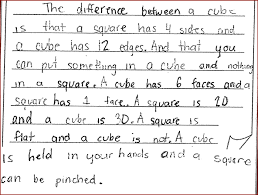 The difference between a cube
is that a square has 4 sides and
a cube has 12 edges. And that you
can put something in a cube and nothing
in a square. A cube has 6 faces and a
square has 1 face. A square is 2D
and a cube is 3D. A square is
flat and a cube is not. A cube
is held in your hands and a square
can be pinched.